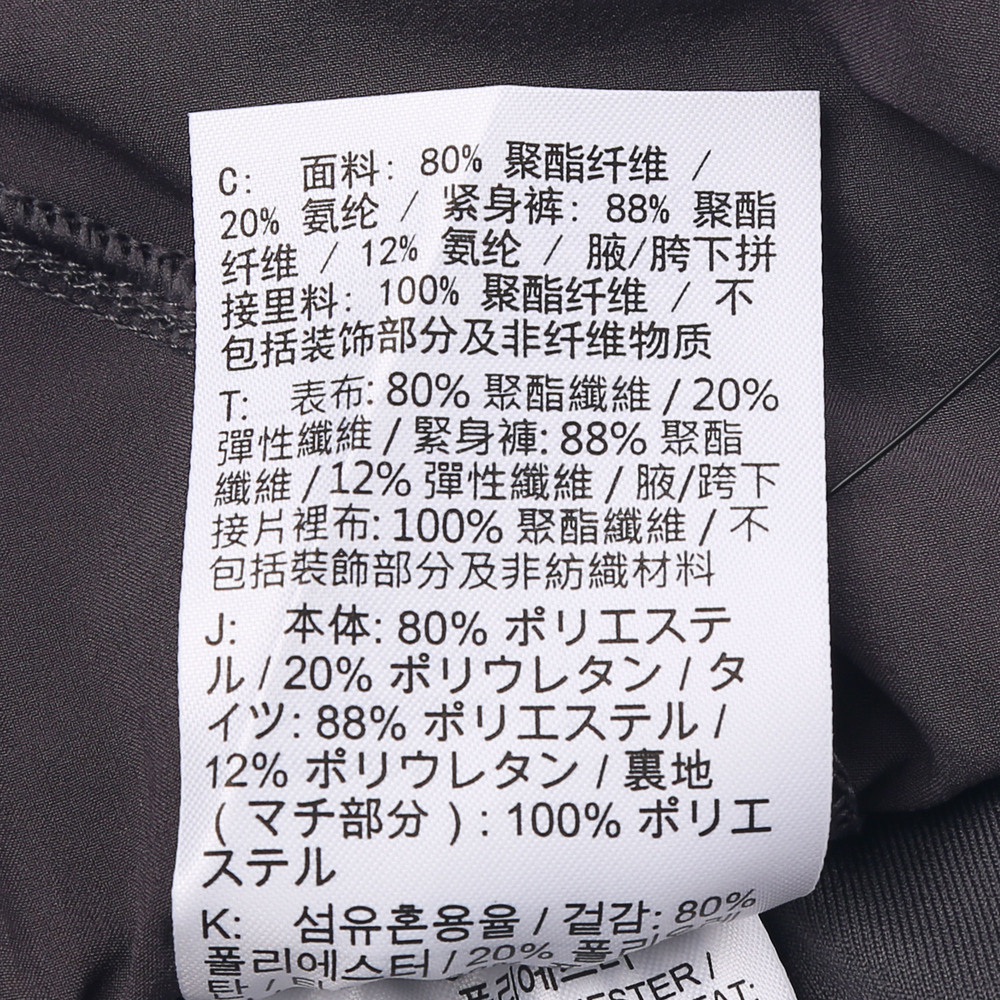 C: 面料: 80% 聚酯纤维 /
20% 氨纶 / 紧身裤: 88% 聚酯
纤维 / 12% 氨纶 / 腋/胯下拼
接里料: 100% 聚酯纤维 / 不
包括装饰部分及非纤维物质
T: 表布: 80% 聚酯纖維 / 20%
彈性纖維 / 緊身褲: 88% 聚酯
纖維 / 12% 彈性纖維 / 腋/跨下
接片裡布: 100% 聚酯纖維 / 不
包括裝飾部分及非紡織材料
J: 本体: 80% ポリエステ
ル / 20% ポリウレタン / タ
イツ: 88% ポリエステル /
12% ポリウレタン / 裏地
( マチ部分 ) : 100% ポリエ
ステル
K: 섬유혼용율 / 겉감: 80%
폴리에스터 / 20% 폴리우레
탄 /